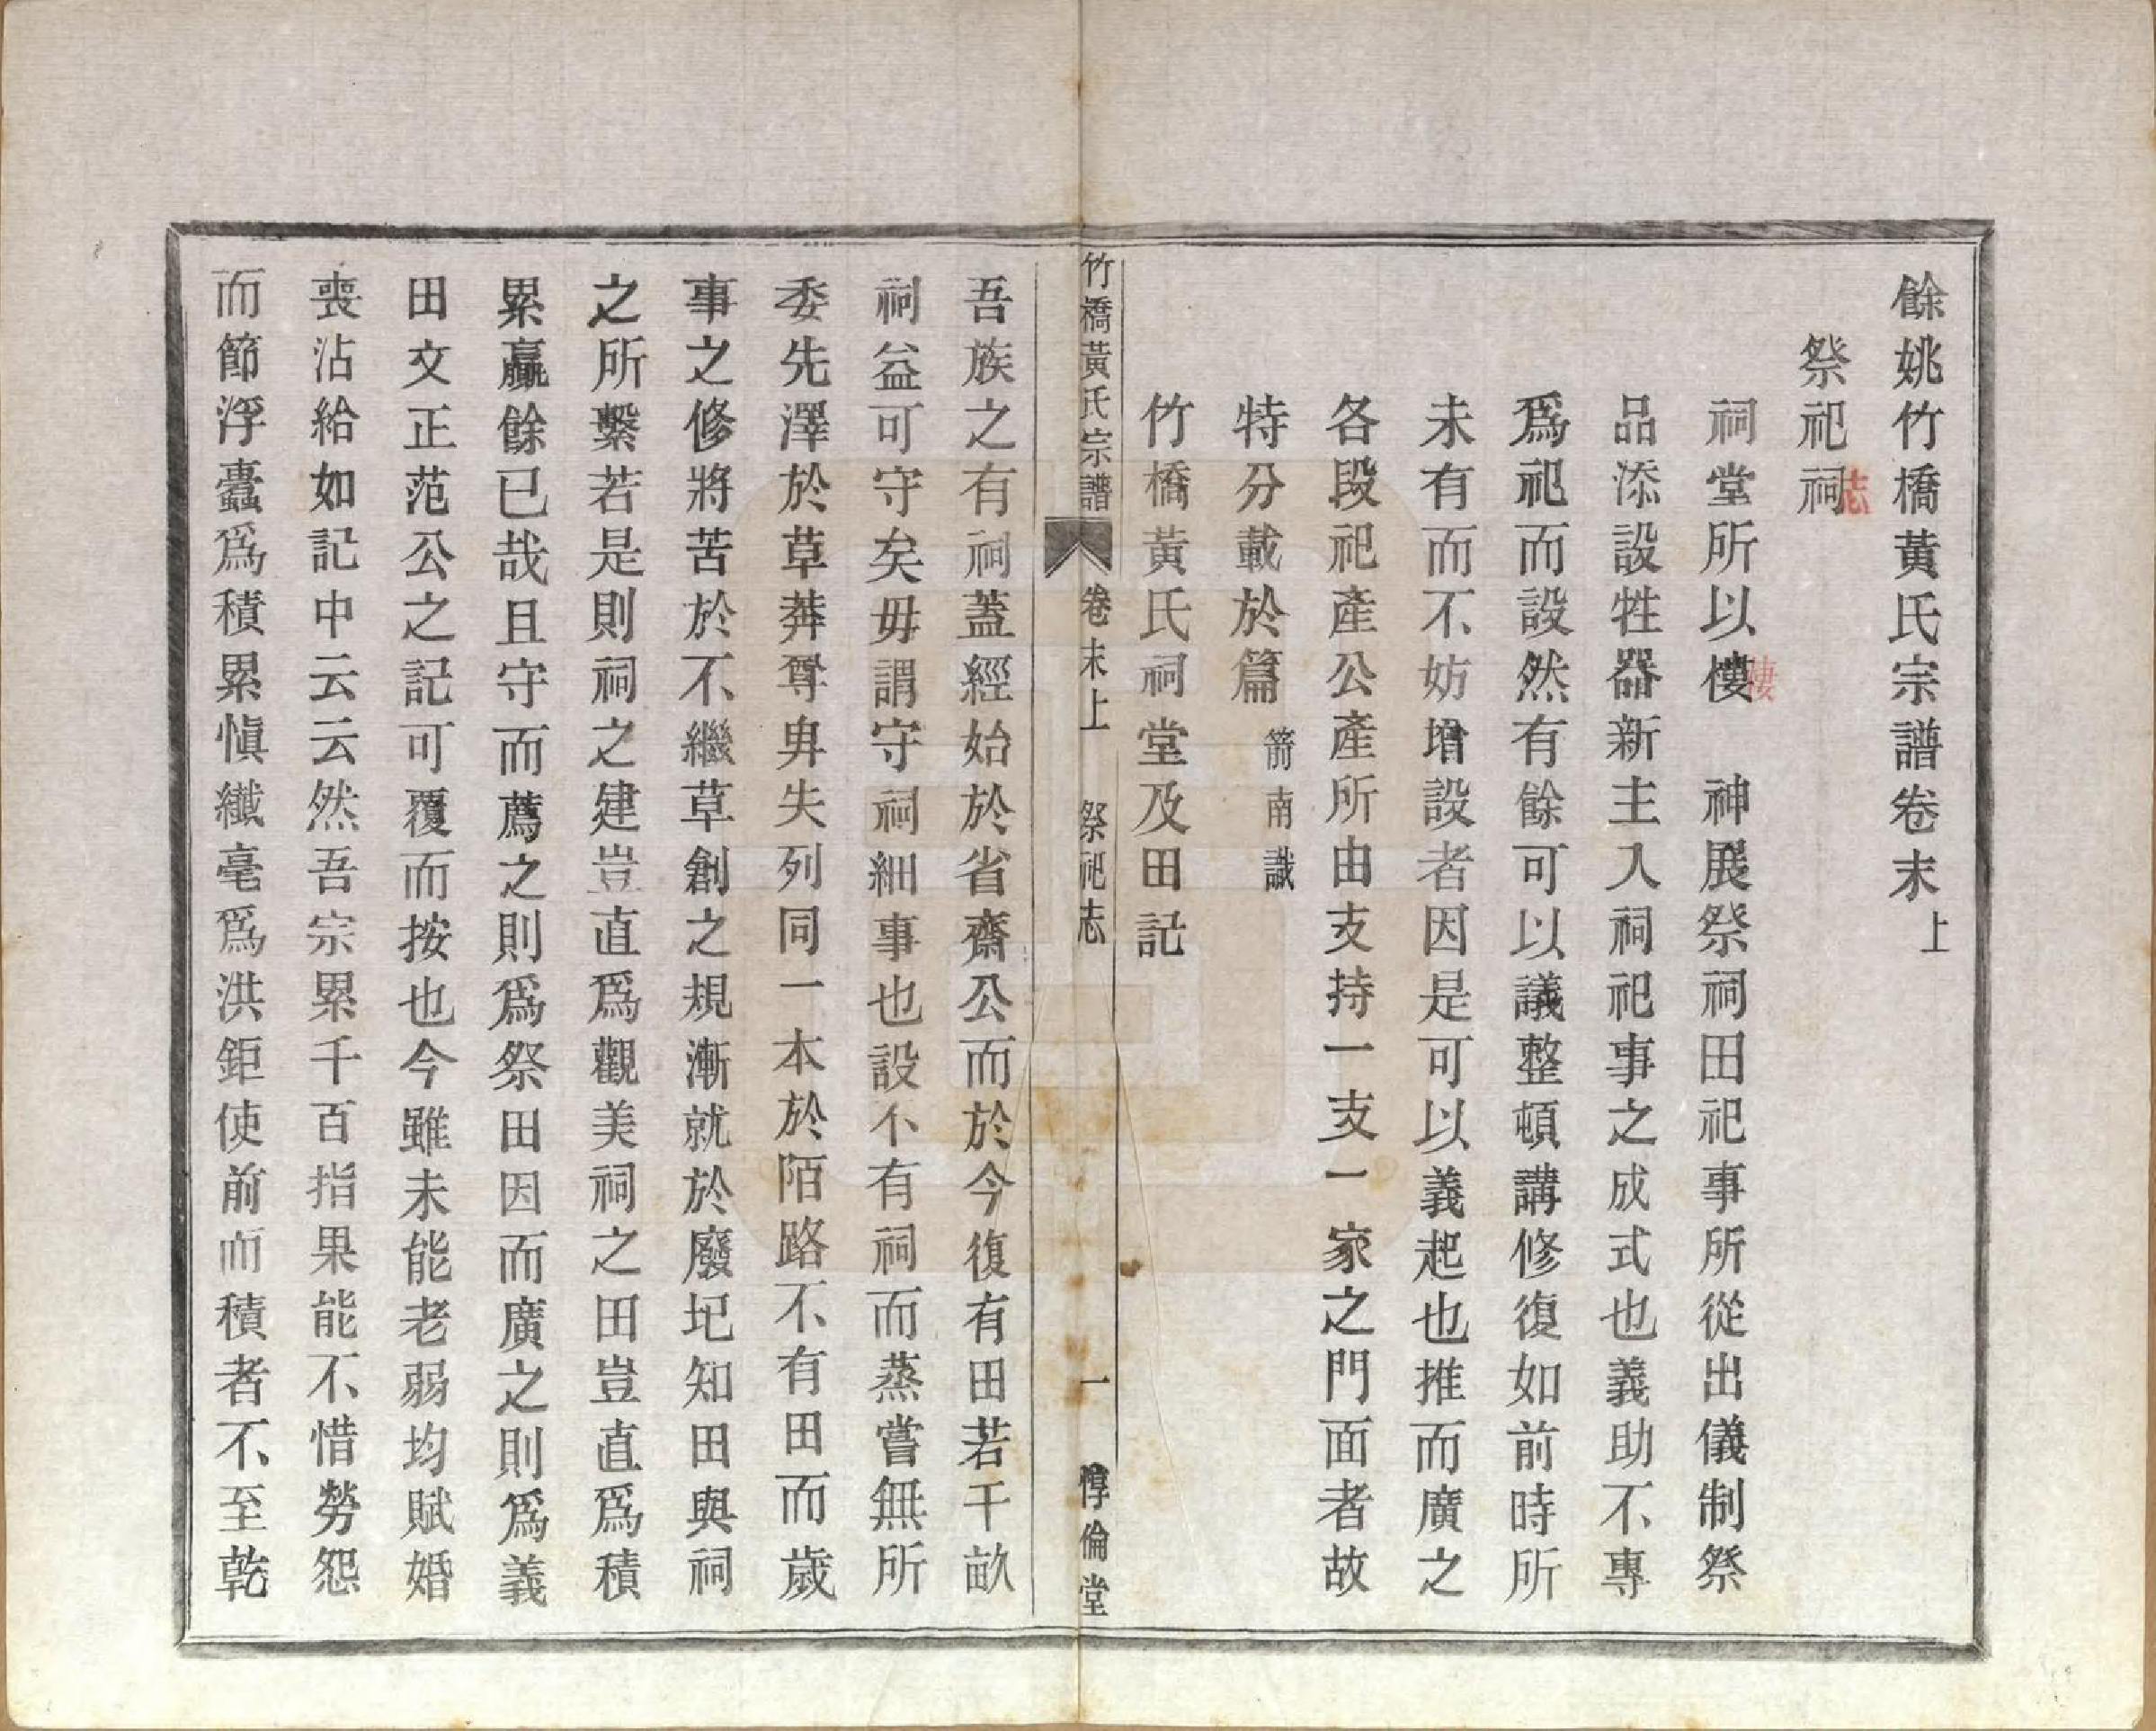 餘姚竹橋黃氏宗譜卷末上
祭祀祠志
祠堂所以樓棲　神展祭祠田祀事所從出儀制祭
品添設牲器新主入祠祀事之成式也義助不專
爲祀而設然有餘可以議整頓講修復如前時所
未有而不妨增設者因是可以義起也推而廣之
各段祀產公產所由支持一支一家之門面者故
特分載於篇 箭南識
竹橋黃氏祠堂及田記
竹橋黃氏宗譜　卷末上　祭祀志　一　惇倫堂
吾族之有祠蓋經始於省齋公而於今復有田若干畝
祠益可守矣毋謂守祠細事也設不有祠而蒸嘗無所
委先澤於草莽尊卑失列同一本於陌路不有田而歲
事之修將苦於不繼草創之規漸就於廢圮知田與祠
之所繫若是則祠之建豈直爲觀美祠之田豈直爲積
累贏餘已哉且守而薦之則爲祭田因而廣之則爲義
田文正范公之記可覆而按也今雖未能老弱均賦婚
喪沾給如記中云云然吾宗累千百指果能不惜勞怨
而節浮蠹爲積累愼纖毫爲洪鉅使前而積者不至乾